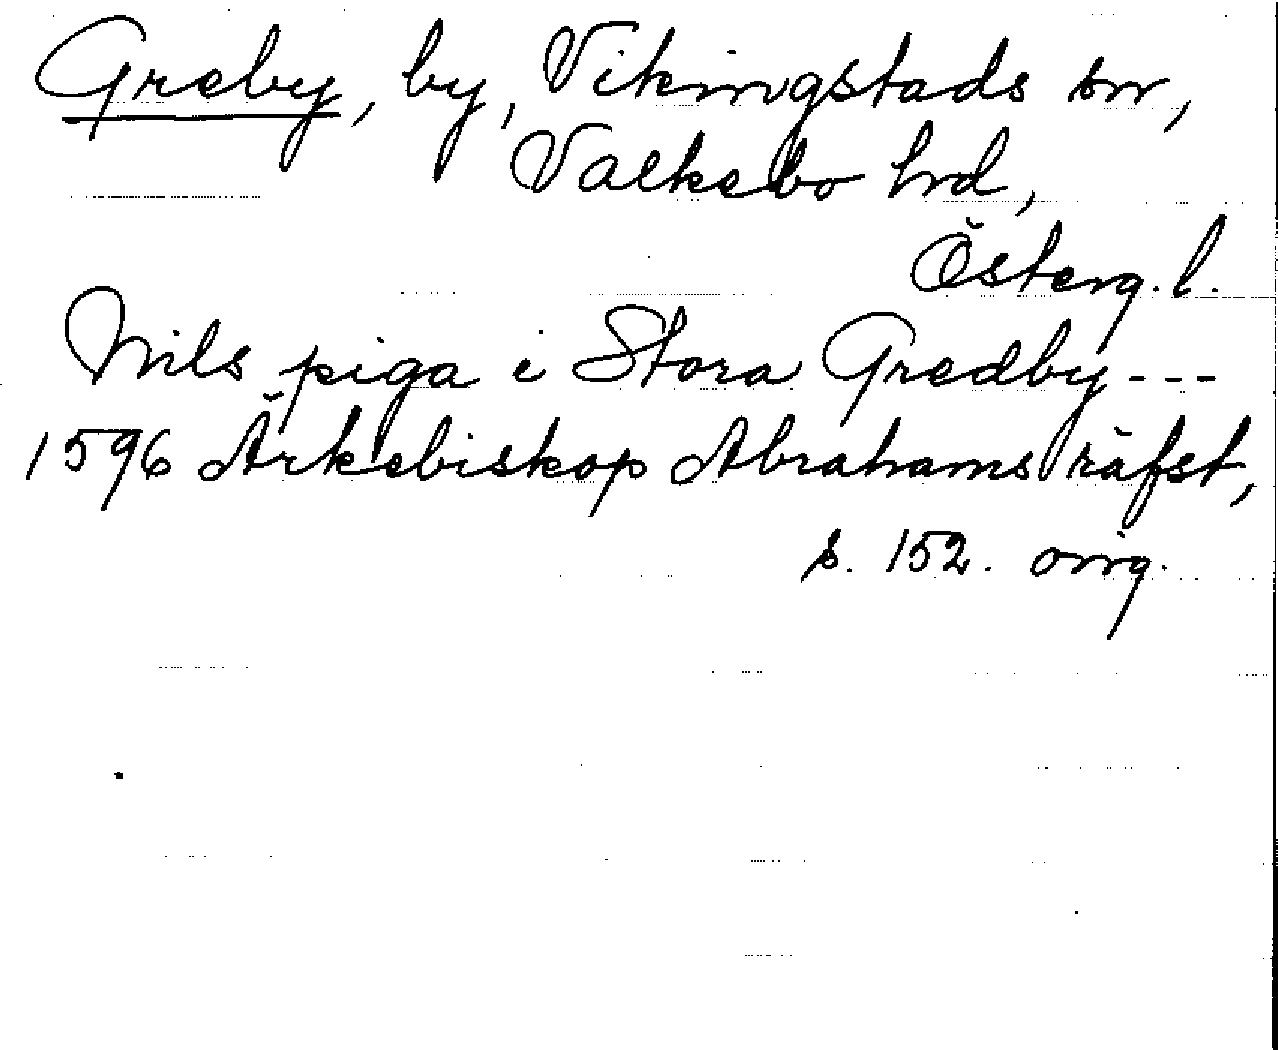 Greby, by, Vikingstads sn,
Valkebo hrd,
Österg. l.
Nils piga i Stora Gredby ---
1596 Ärkebiskop Abrahams räfst,
s. 152. orig.